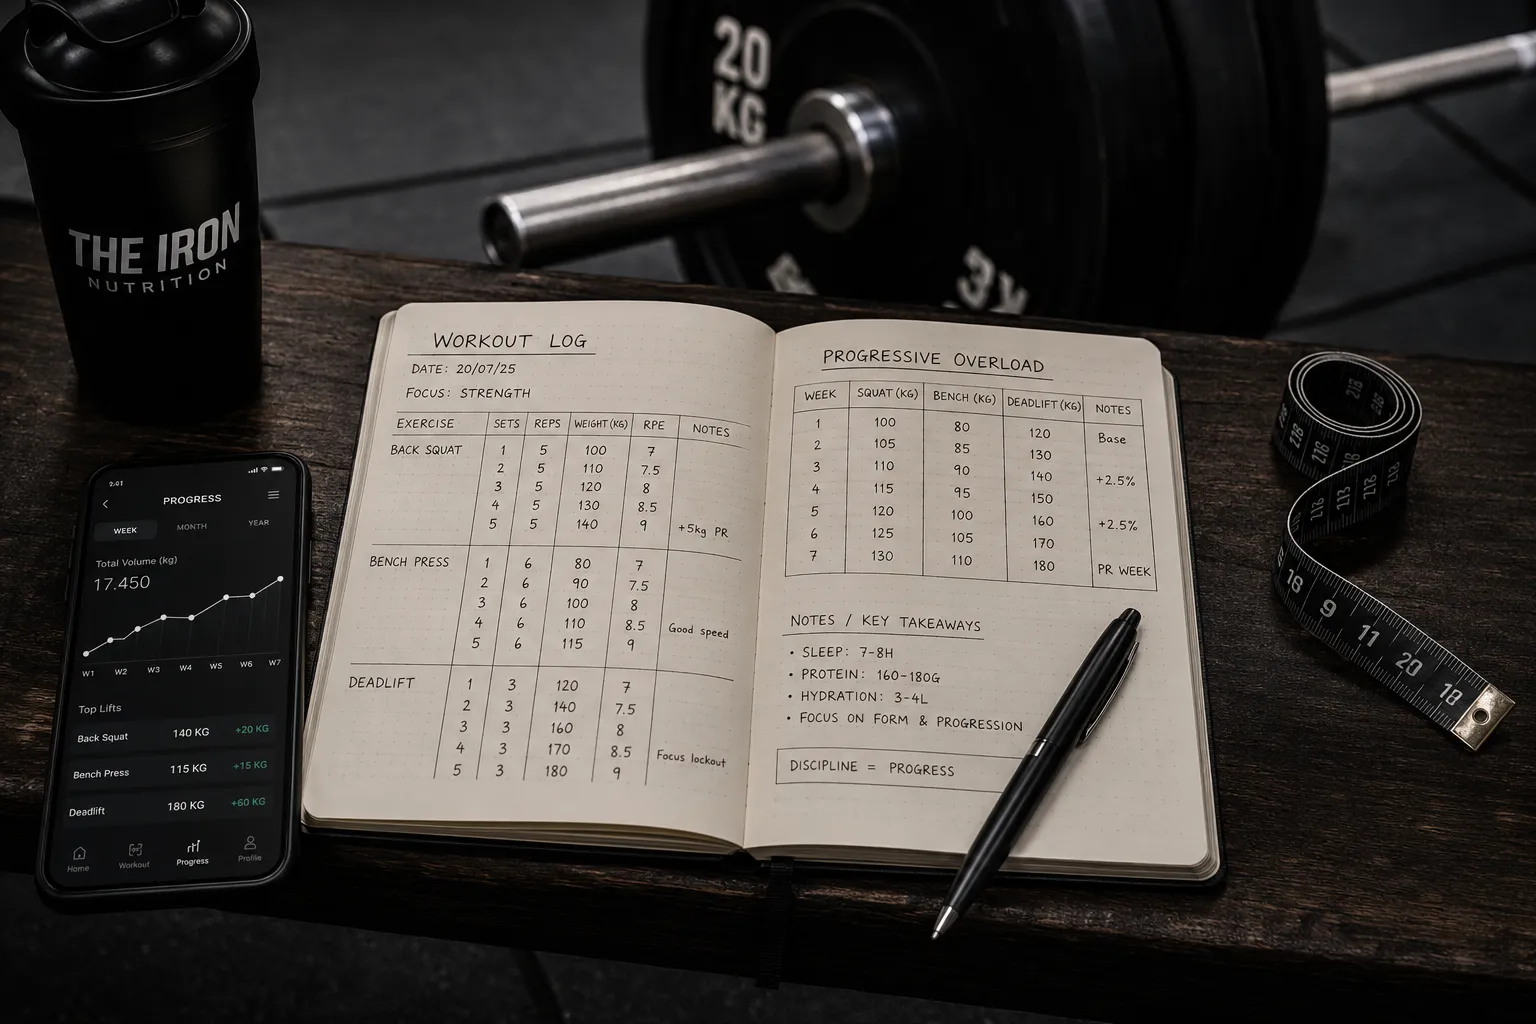 20
KG
THE IRON
NUTRITION
WORKOUT LOG
DATE: 20/07/25
FOCUS: STRENGTH
EXERCISE SETS REPS WEIGHT (KG) RPE NOTES
BACK SQUAT 1 5 100 7
2 5 110 7.5
3 5 120 8
4 5 130 8.5
5 5 140 9 +5kg PR
BENCH PRESS 1 6 80 7
2 6 90 7.5
3 6 100 8
4 6 110 8.5 Good speed
5 6 115 9
DEADLIFT 1 3 120 7
2 3 140 7.5
3 3 160 8
4 3 170 8.5 Focus lockout
5 3 180 9
PROGRESSIVE OVERLOAD
WEEK SQUAT (KG) BENCH (KG) DEADLIFT (KG) NOTES
1 100 80 120 Base
2 105 85 130
3 110 90 140 +2.5%
4 115 95 150
5 120 100 160 +2.5%
6 125 105 170
7 130 110 180 PR WEEK
NOTES / KEY TAKEAWAYS
• SLEEP: 7-8H
• PROTEIN: 160-180G
• HYDRATION: 3-4L
• FOCUS ON FORM & PROGRESSION
DISCIPLINE = PROGRESS
2:01
PROGRESS
WEEK MONTH YEAR
Total Volume (kg)
17.450
W1 W2 W3 W4 W5 W6 W7
Top Lifts
Back Squat 140 KG +20 KG
Bench Press 115 KG +15 KG
Deadlift 180 KG +60 KG
Home Workout Progress Profile
16 9 11 20 18